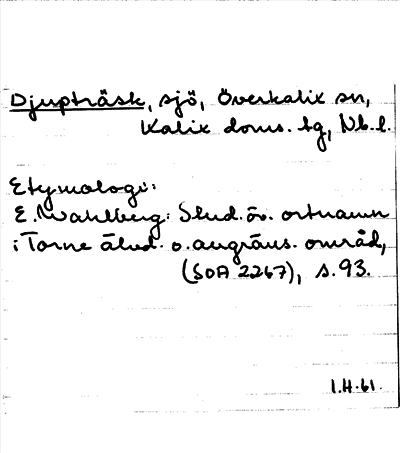 Djupträsk, sjö, Överkalix sn,
Kalix doms. tg, Nb. l.
Etymologi:
E. Wahlberg: Stud. öv. ortnamn
i Torne älvd. o. angräns. områd,
(SOA 2267), s. 93.
1.H.61.